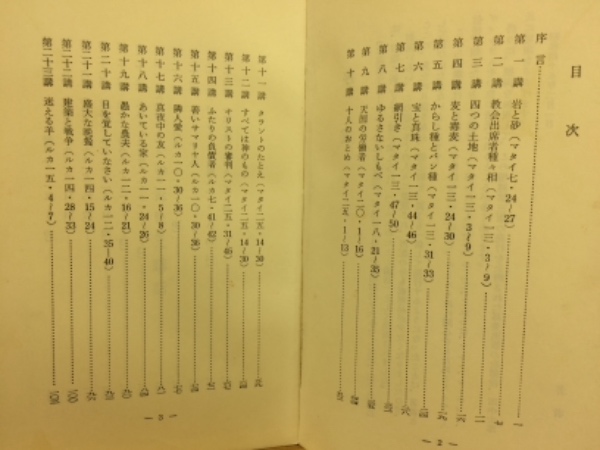 目次
序言
第一講 岩と砂（マタイ七・24〜27） 一
第二講 教会出席者種々相（マタイ一三・3〜9） 七
第三講 四つの土地（マタイ一三・3〜9）
第四講 麦と毒麦（マタイ一三・24〜30）
第五講 からし種とパン種（マタイ一三・31〜33）
第六講 宝と真珠（マタイ一三・44〜46）
第七講 網引き（マタイ一三・47〜50）
第八講 ゆるさないしもべ（マタイ一八・21〜35）
第九講 天国の労働者（マタイ二〇・1〜16）
第十講 十人のおとめ（マタイ二五・1〜13）
— 2 —
第十一講 タラントのたとえ（マタイ二五・14〜30）
第十二講 すべては神のもの（マタイ二五・14〜30）
第十三講 キリストの審判（マタイ二五・31〜46）
第十四講 ふたりの負債者（ルカ七・41〜42）
第十五講 善いサマリヤ人（ルカ一〇・30〜36）
第十六講 隣人愛（ルカ一〇・30〜36）
第十七講 真夜中の友（ルカ一一・5〜8）
第十八講 あいている家（ルカ一一・24〜26）
第十九講 愚かな農夫（ルカ一二・16〜21）
第二十講 目を覚していなさい（ルカ一二・35〜40）
第二十一講 盛大な晩餐（ルカ一四・15〜24）
第二十二講 建築と戦争（ルカ一四・28〜33）
第二十三講 迷える羊（ルカ一五・4〜7）
— 3 —